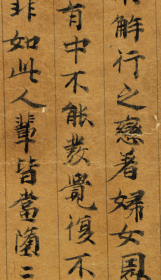 解行之戀著婦女園
有中不能發覺復不
非如此人輩皆當墮二